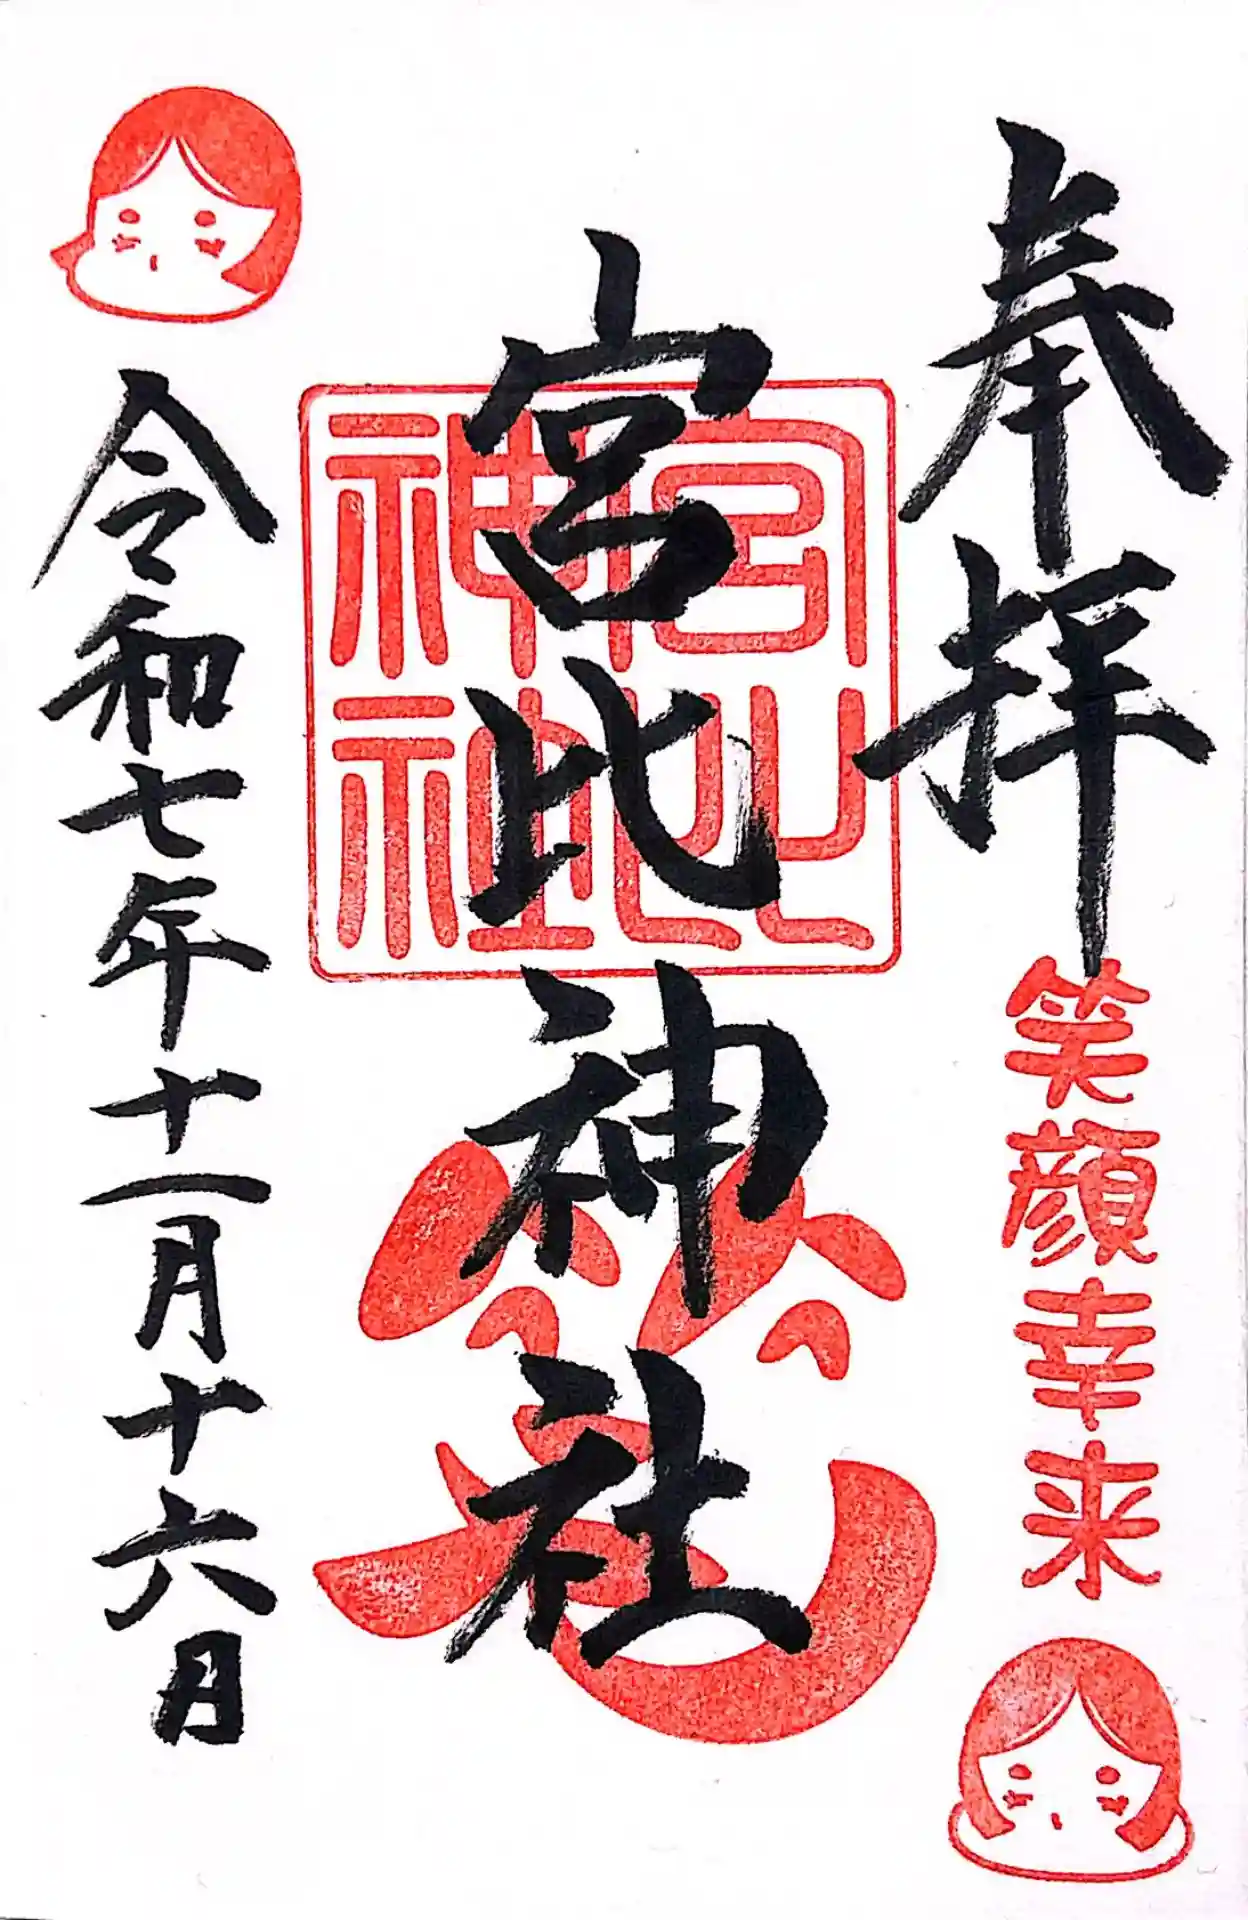 奉拝
笑顔幸来
宮比神社
宮比
神社
笑
令和七年十一月十六日